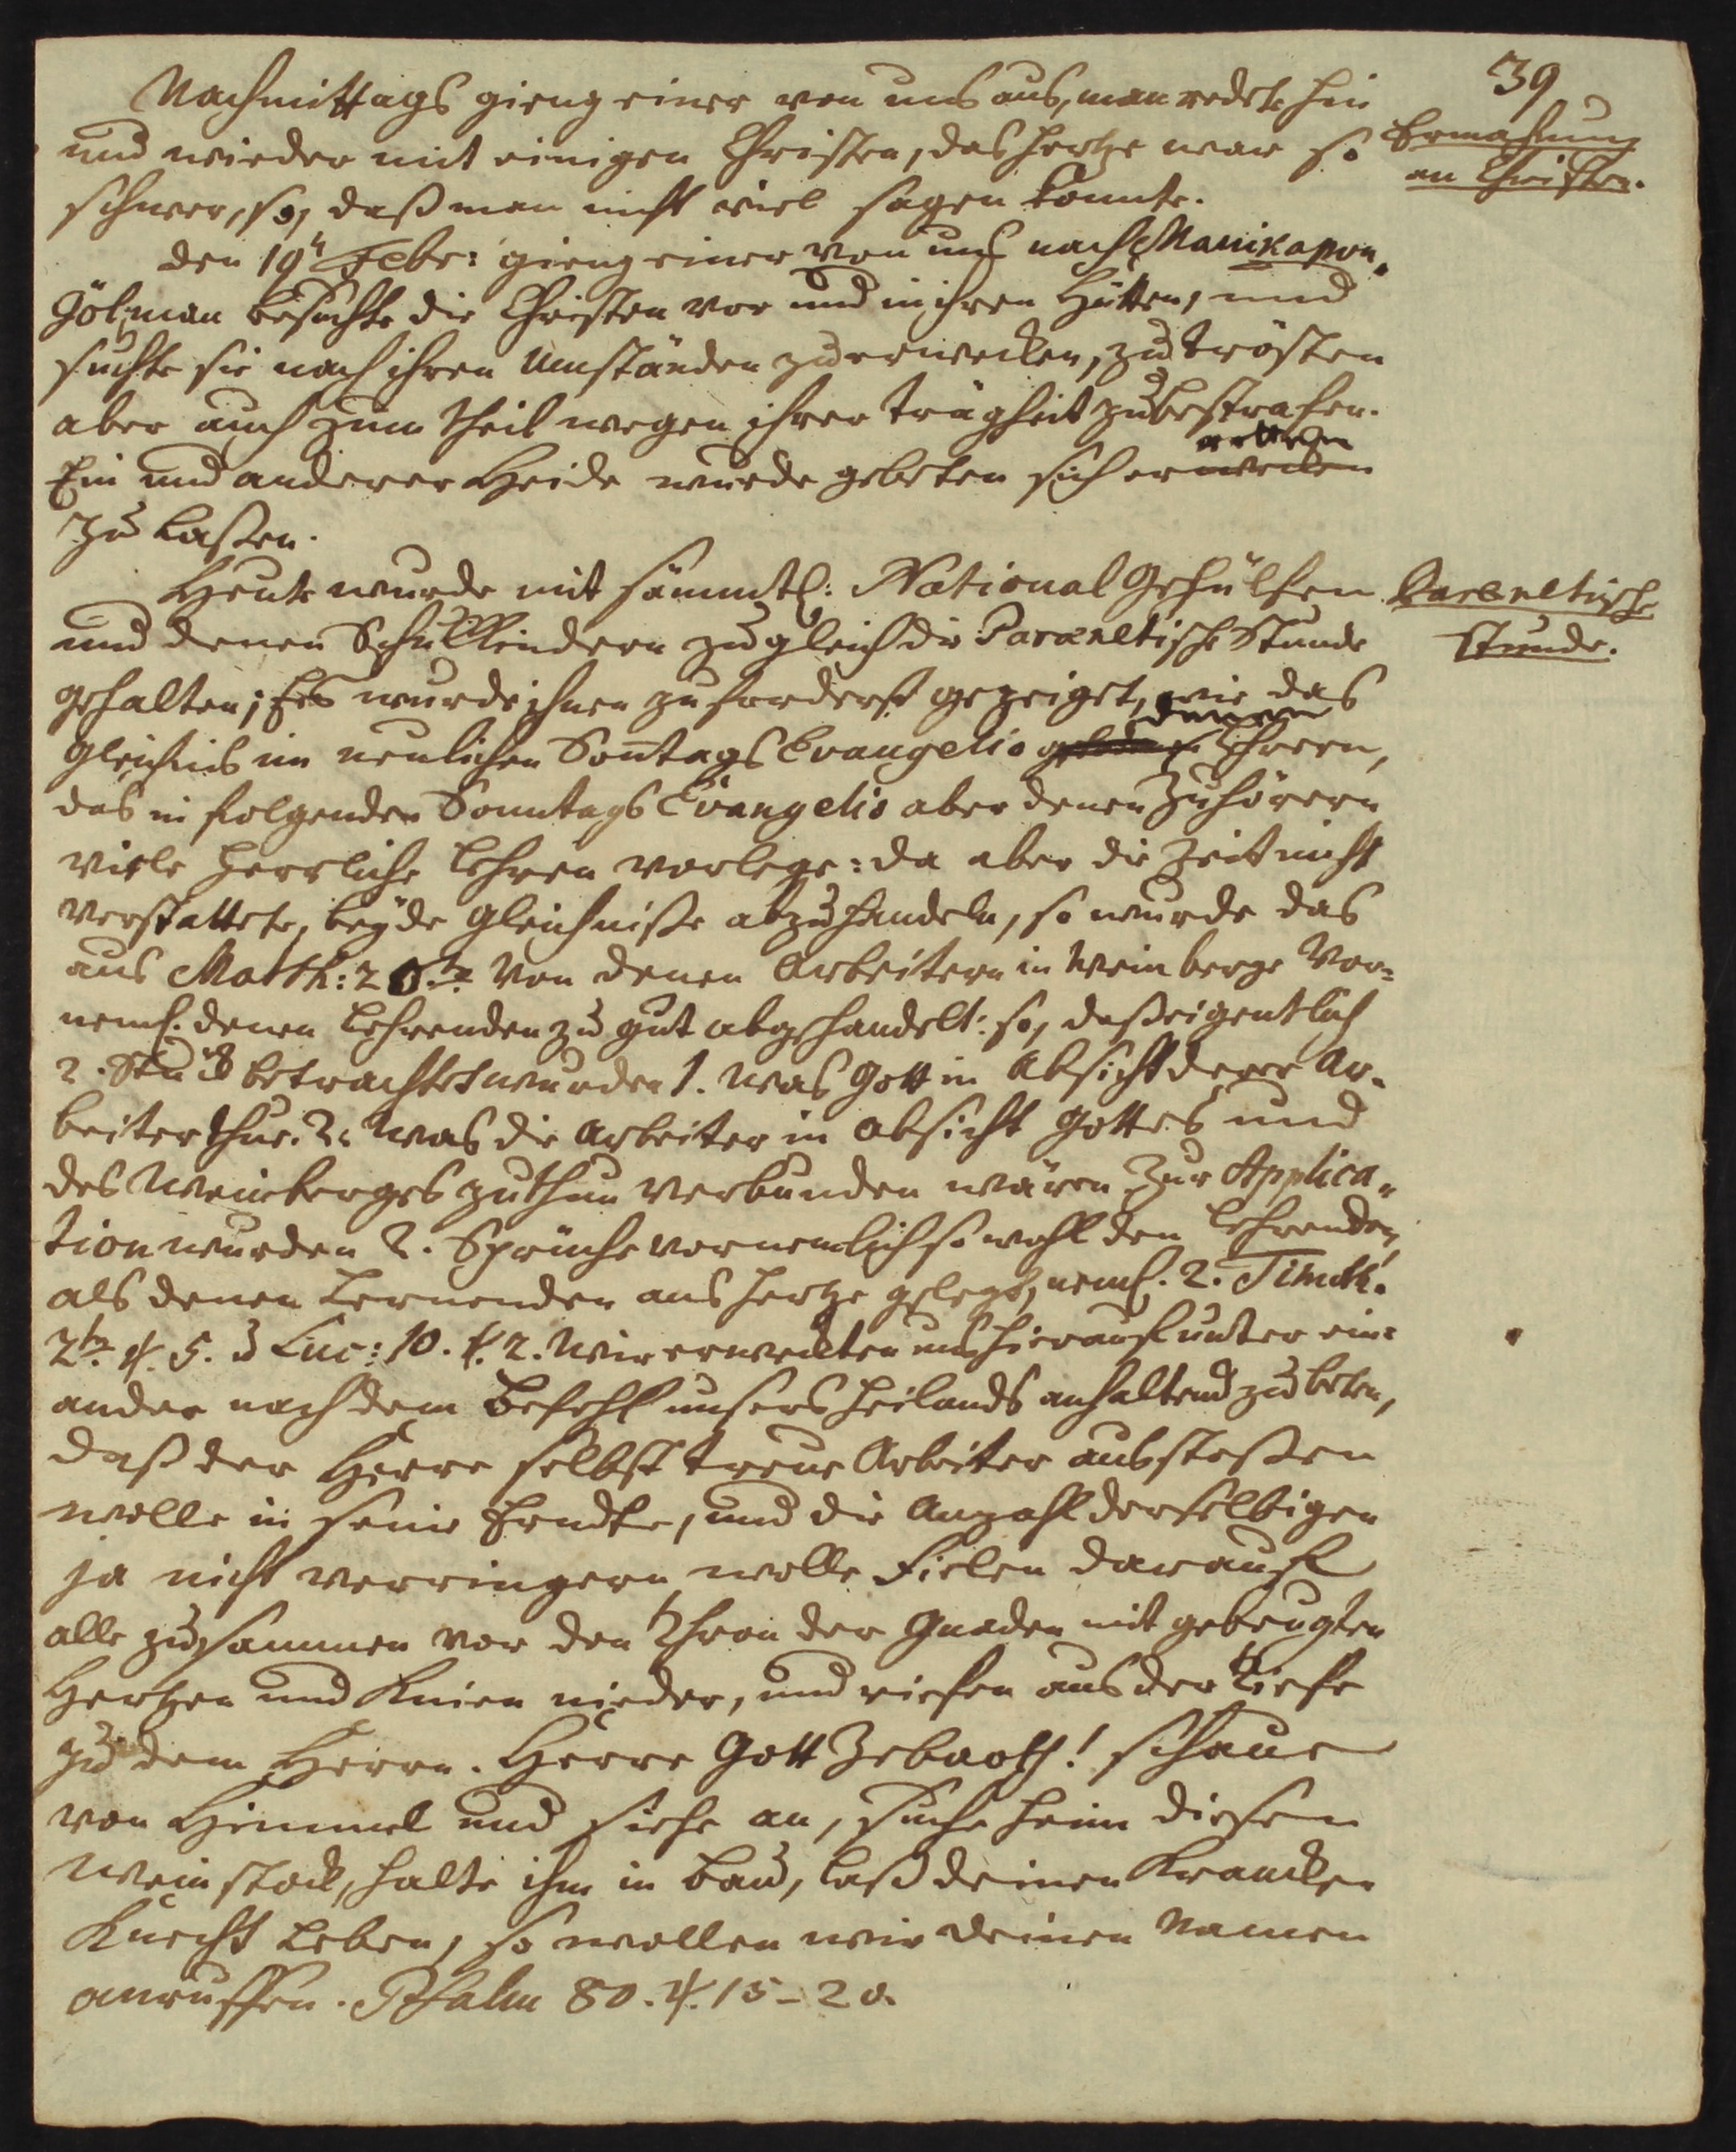 39
Nachmittags gieng einer von uns aus, man redete hin
und wieder mit einigen Christen, das Hertze war so
schwer, so, daß man nicht viel sagen konnte.
Ermahnung
an Christen.
den 19t Febr: gieng einer von uns nach Manikapon„
göl, man besuchte die Christen vor und in ihren Hütten, und
suchte sie nach ihren Umständen zu erwecken, zu trösten
aber auch zum theil wegen ihrer trägheit zu bestrafen.
Ein und anderer Heide wurde gebeten sich erwecken
retten
zu laßen.
Heute wurde mit sämmtl: National Gehülfen
und denen Schulkindern zugleich die Paraenetische Stunde
Paraenetische
Stunde.
gehalten; Es wurde ihnen zuforderst gezeiget, wie das
denen
Gleichnis im neulichen Son̅tags Evangelio Lehrern,
das in folgenden Sonntags Evangelio aber denen Zuhörern
viele herrliche Lehren vorlege: da aber die Zeit nicht
verstattete, beÿde Gleichniße abzuhandeln, so wurde das
aus Matth: 20.te von denen Arbeitern in Weinberge vor=
neml. denen Lehrenden zu gut abgehandelt: so, daß eigentlich
2. Stück betrachtet wurden 1. was Gott in Absicht derer Ar„
beiter thue. 2. was die Arbeiter in Absicht Gottes und
des Weinberges zu thun verbunden wären Zur Applica„
tion wurden 2. Sprüche vornemlich so wohl den Lehrenden,
als denen Lernenden ans Hertze gelegt, neml. 2. Timoth.
2te ℣. 5. u Luc: 10. ℣. 2. Wir erweckten uns hierauf unter ein=
ander nach dem Befehl unsers Heilands anhaltend zu beten,
daß der Herre selbst treue Arbeiter ausstoßen
wolle in seine Erndte, und die Anzahl derselbigen
ja nicht verringern wolle fielen darauf
alle zusammen vor den Thron der Gnaden mit gebeugten
Hertzen und Knien nieder, und riefen aus der Tiefe
zu dem Herrn. Herre Gott Zebaoth! schaue
von Himmel und siehe an, suche heim diesen
Weinstock, halte ihn in bau, laß deinen Krancken
Knecht Leben, so wollen wir deinen Namen
anruffen. Psalm 80. ℣. 15-20.